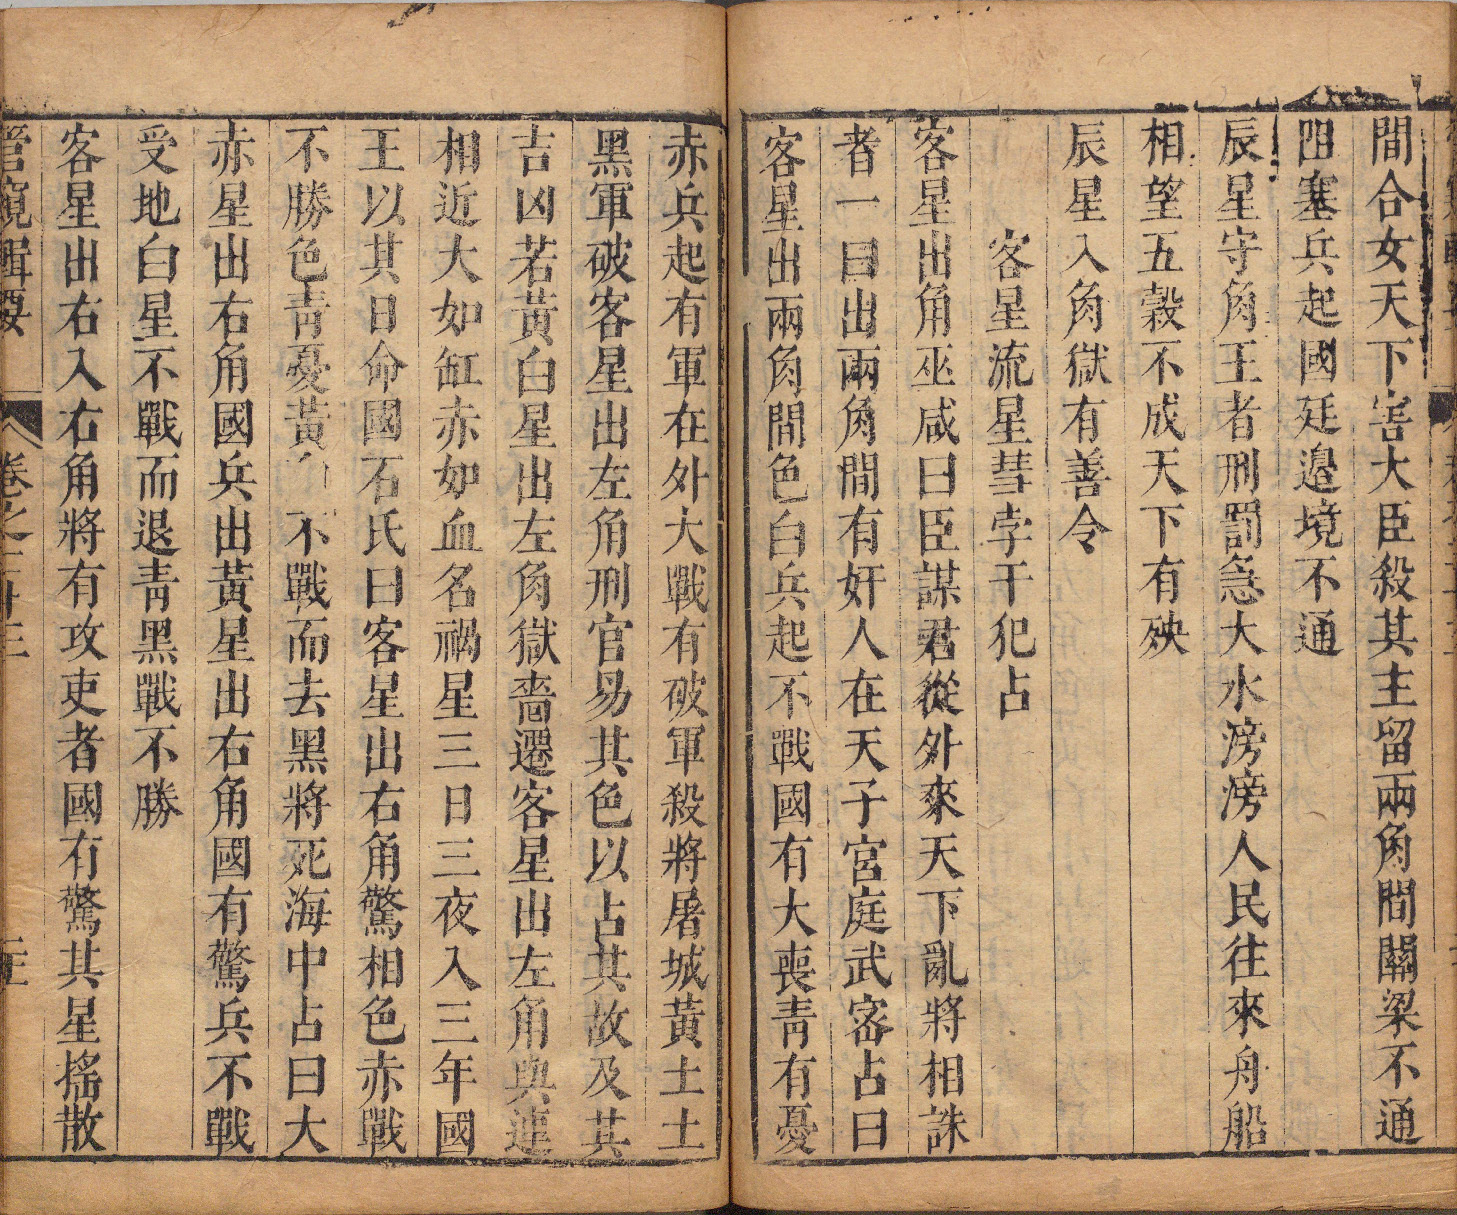 間合女天下害大臣殺其主留兩角間關梁不通
阻塞兵起國廷邉境不通
辰星守角王者刑罰急大水滂滂人民往來舟船
相望五穀不成天下有殃
辰星入角獄有善令
客星流星彗孛干犯占
客星出角巫咸曰臣謀君從外來天下亂將相誅
者一曰出兩角間有奸人在天子宮庭武宻占曰
客星出兩角間色白兵起不戰國有大喪青有憂
赤兵起有軍在外大戰有破軍殺將屠城黃土土
黑軍破客星出左角刑官易其色以占其故及其
吉凶若黃白星出左角獄嗇遷客星出左角與連
相近大如缸赤如血名禍星三日三夜入三年國
王以其日命國石氏曰客星出右角驚相色赤戰
不勝色青憂黃白不戰而去黑將死海中占曰大
赤星出右角國兵出黃星出右角國有驚兵不戰
受地白星不戰而退青黑戰不勝
客星出右入右角將有攻吏者國有驚其星搖散
管窺輯要
卷之